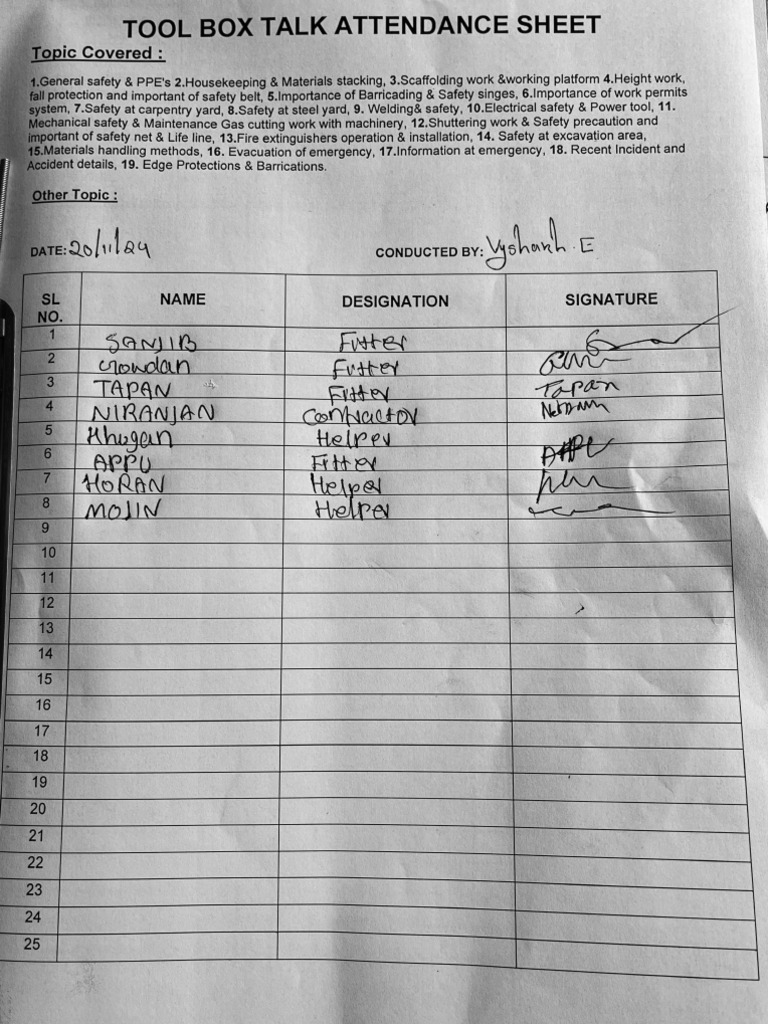 TOOL BOX TALK ATTENDANCE SHEET
Topic Covered :
1.General safety & PPE's 2.Housekeeping & Materials stacking, 3.Scaffolding work &working platform 4.Height work,
fall protection and important of safety belt, 5.Importance of Barricading & Safety singes, 6.Importance of work permits
system, 7.Safety at carpentry yard, 8.Safety at steel yard, 9. Welding& safety, 10.Electrical safety & Power tool, 11.
Mechanical safety & Maintenance Gas cutting work with machinery, 12.Shuttering work & Safety precaution and
important of safety net & Life line, 13.Fire extinguishers operation & installation, 14. Safety at excavation area,
15.Materials handling methods, 16. Evacuation of emergency, 17.Information at emergency, 18. Recent Incident and
Accident details, 19. Edge Protections & Barrications.
Other Topic :
DATE: 20/11/24 CONDUCTED BY: Vyshakh. E
SL NO. NAME DESIGNATION SIGNATURE
1 SANJIB Fitter
2 Fitter
3 TAPAN Fitter Tapan
4 NIRANJAN Contractor
5 Khugan Helper
6 APPU Fitter
7 HORAN Helper
8 MOJIN Helper
9
10
11
12
13
14
15
16
17
18
19
20
21
22
23
24
25